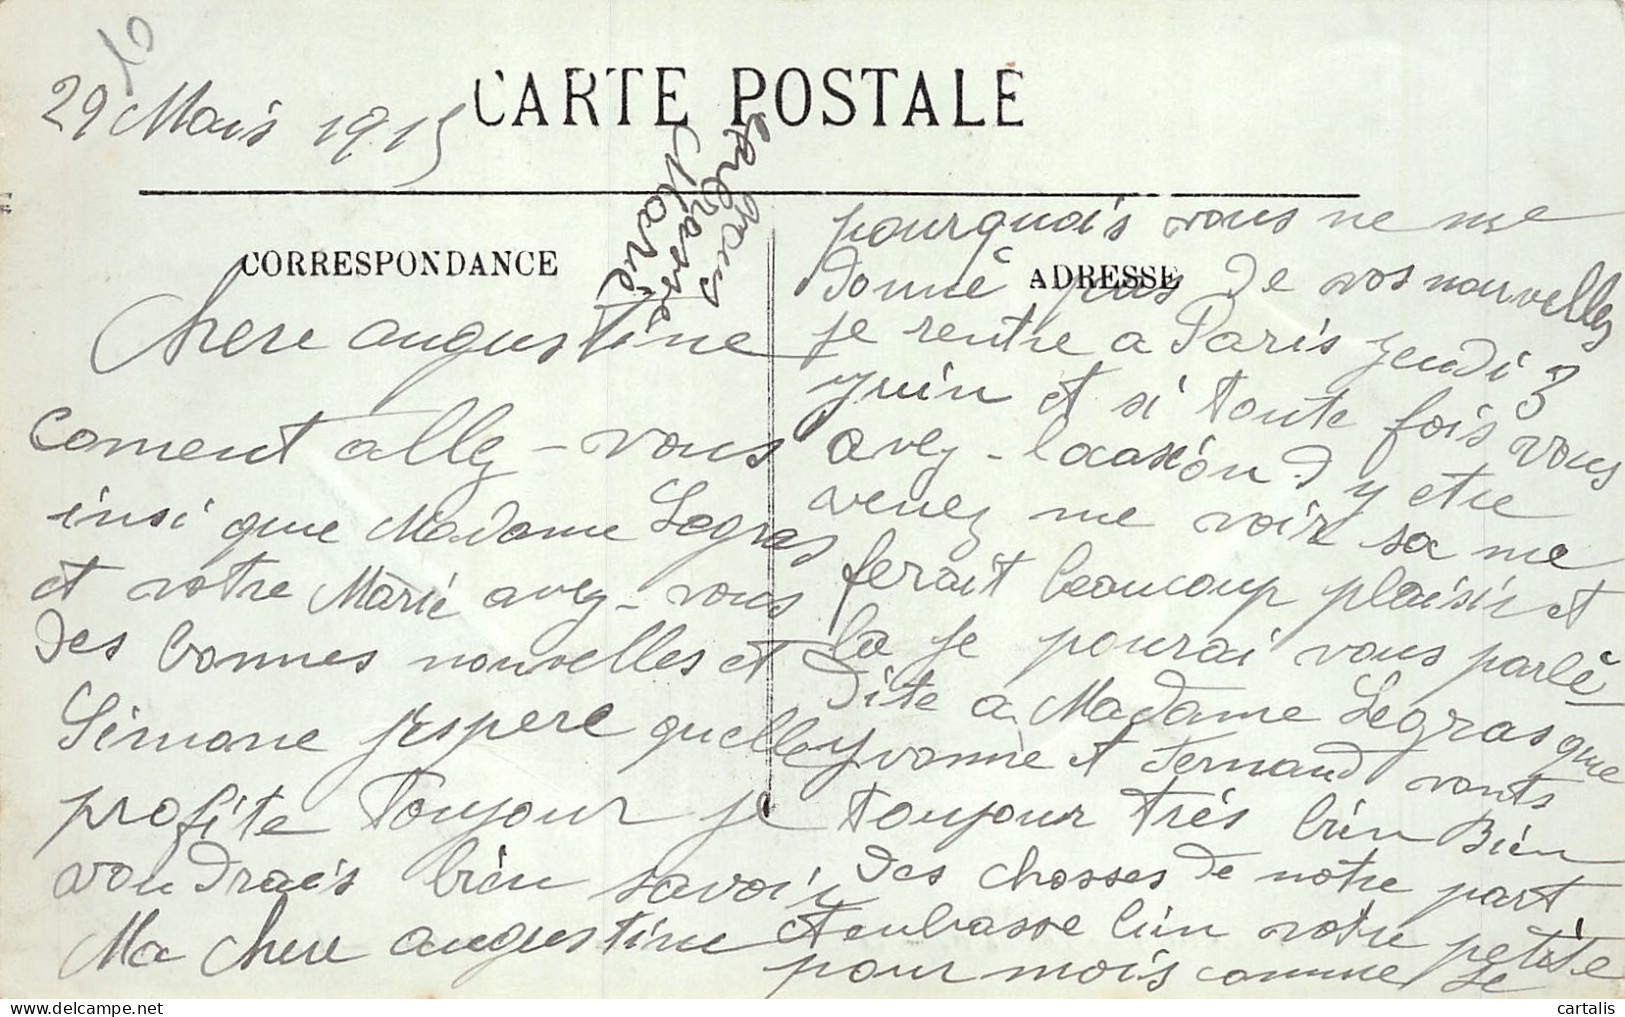 29 Mais 1915
CARTE POSTALE
CORRESPONDANCE
Chere augustine
coment allez-vous
insi que Madame Legras
et votre Marie avez-vous
des bonnes nouvelles et
Simone j'espere quelle
profite toujour je
voudrais bién savoir
Ma chere augustine
ADRESSE
pourquois vous ne me
donné pas de vos nouvelles
je rentre a Paris jeudi 3
juin et si toute fois vous
avez-locasión d y etre
venez me voir sa me
ferait beaucoup plaisir et
la je pourai vous parlè
dite a Madame Legras que
Yvonne et Fernand vonts
toujour trés bien Bien
des chosses de notre part
et enbasse bien votre petite
pour mois comme je
Marie